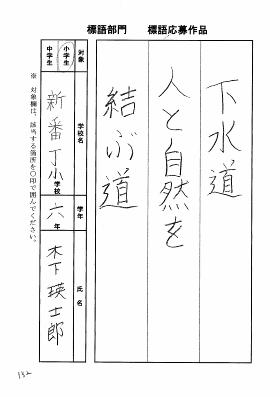 標語部門　標語応募作品
下水道
人と自然を
結ぶ道
対象
小学生
中学生
学校名
新番丁小学校
学年
六年
氏名
木下瑛士郎
※ 対象欄は、該当する箇所を〇印で囲んでください。
132